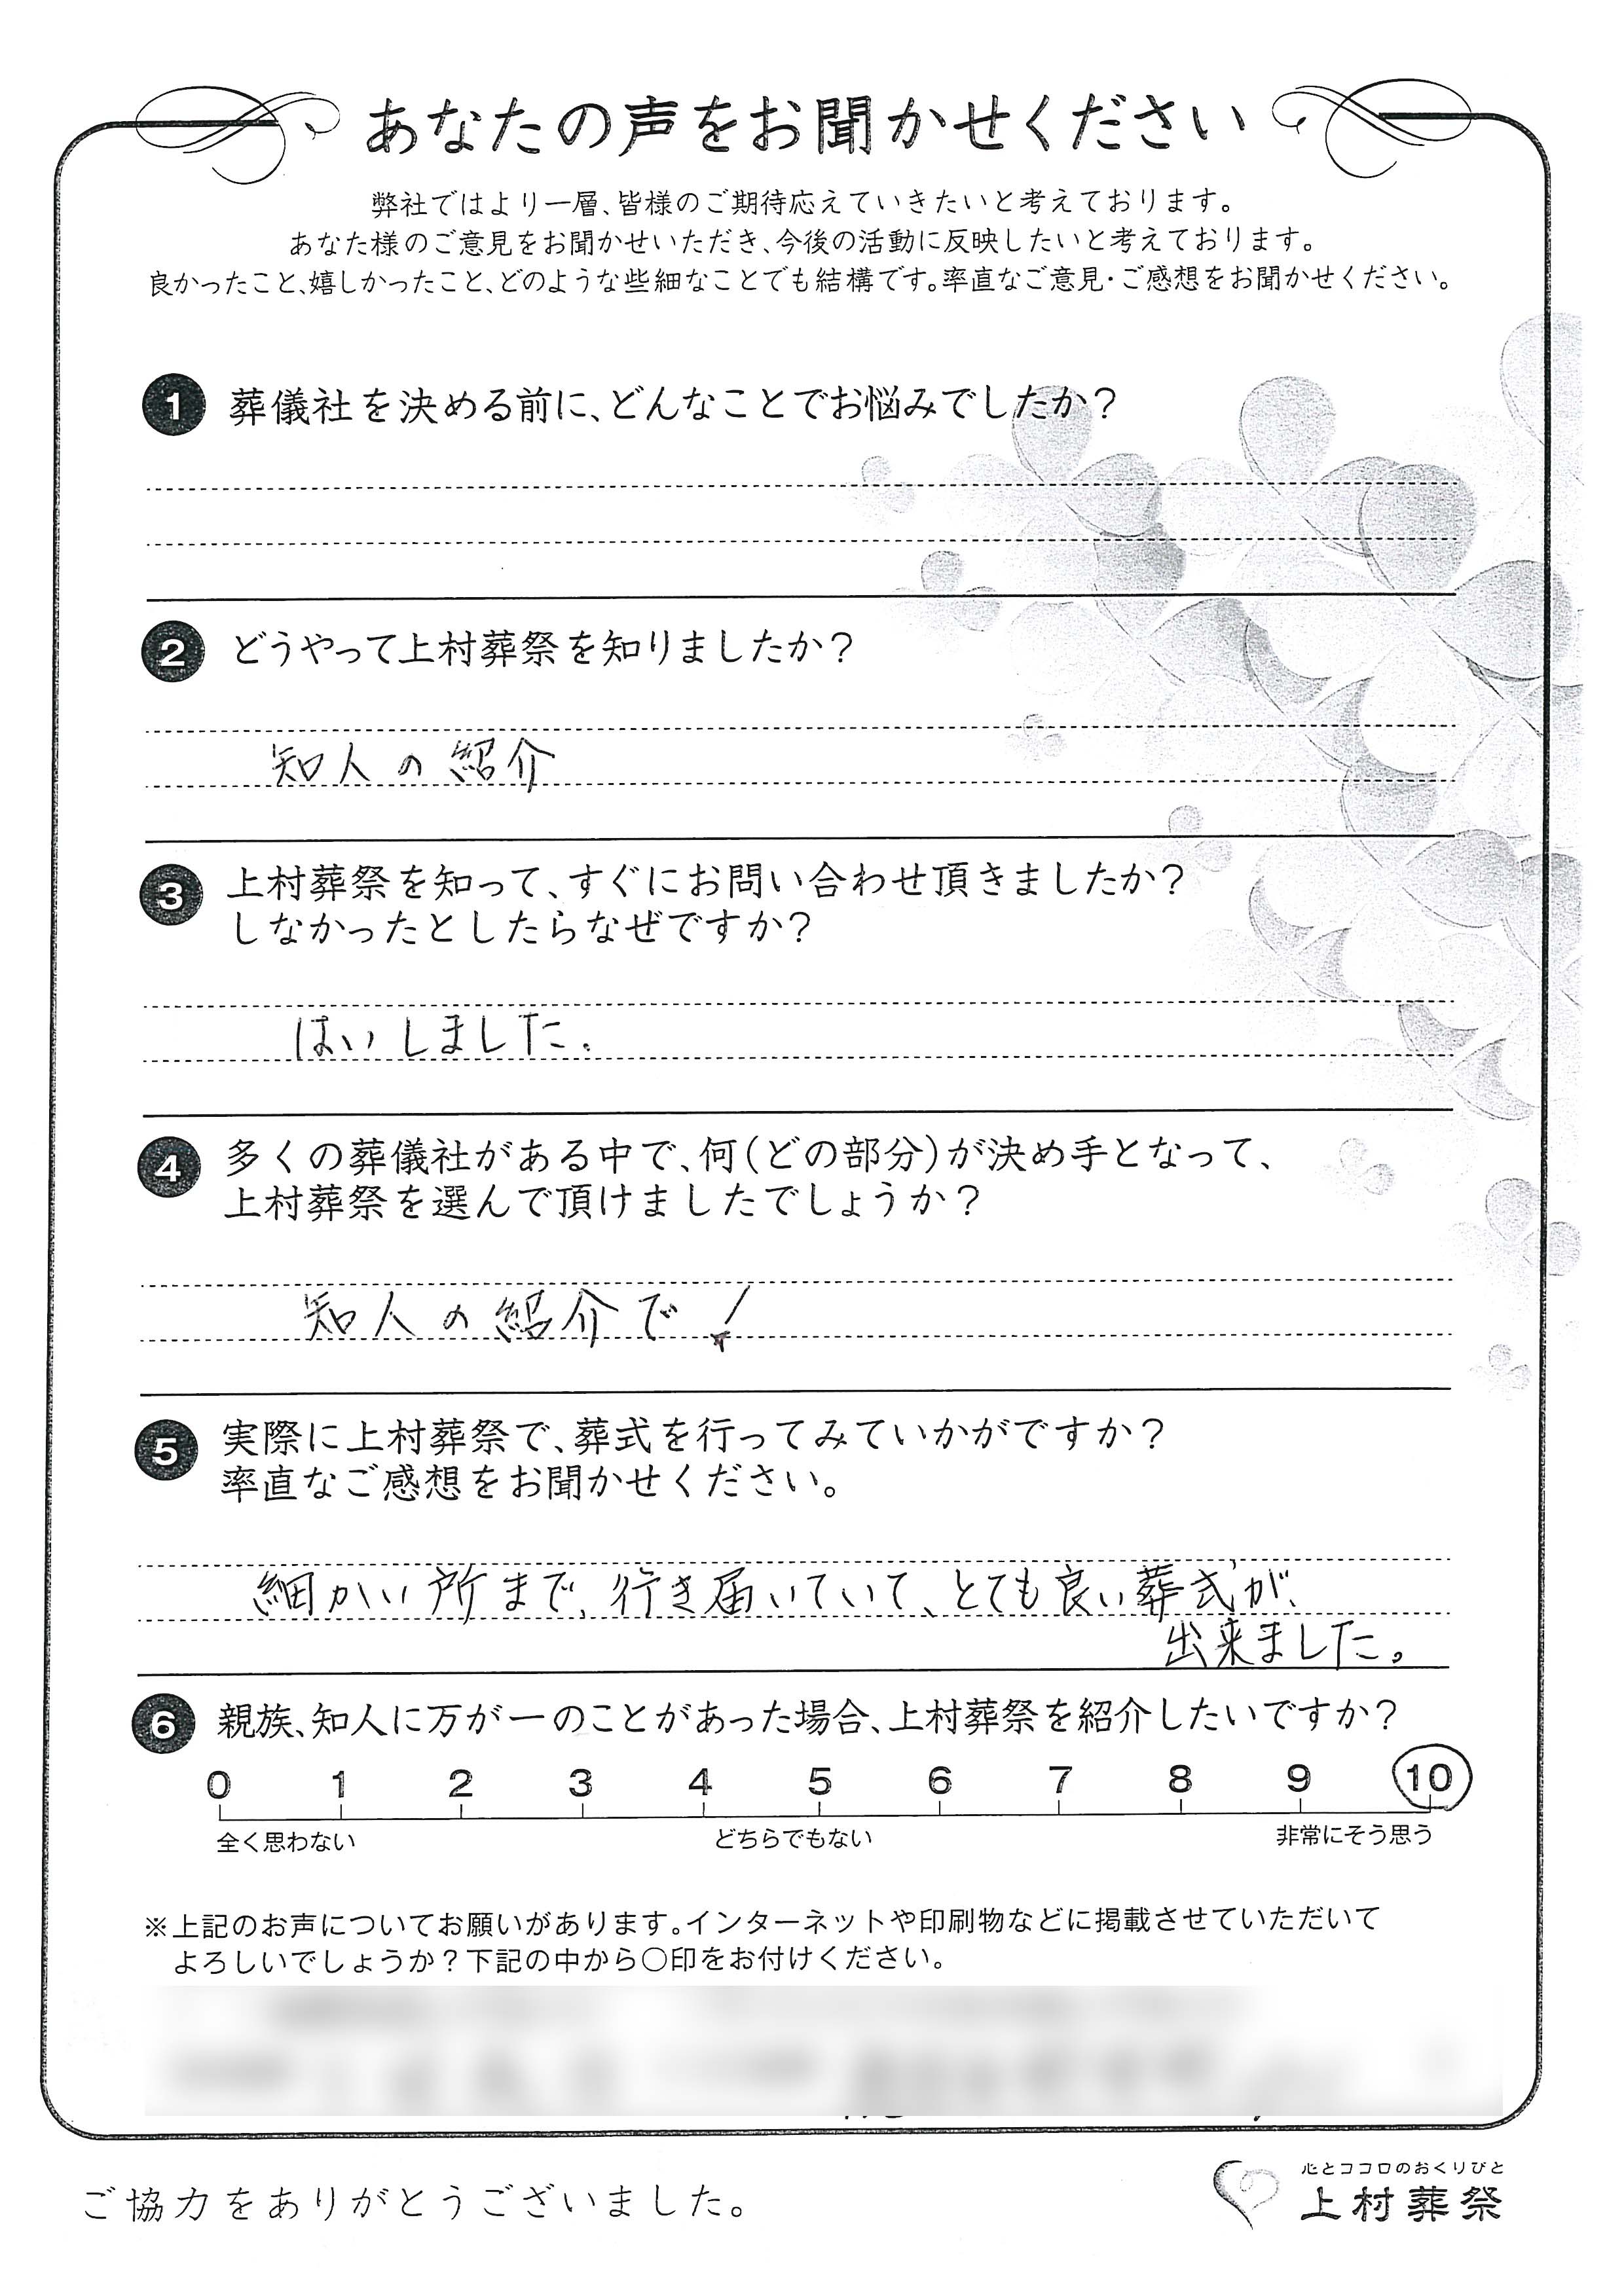 あなたの声をお聞かせください
弊社ではより一層、皆様のご期待応えていきたいと考えております。
あなた様のご意見をお聞かせいただき、今後の活動に反映したいと考えております。
良かったこと、嬉しかったこと、どのような些細なことでも結構です。率直なご意見・ご感想をお聞かせください。
1 葬儀社を決める前に、どんなことでお悩みでしたか？
2 どうやって上村葬祭を知りましたか？
知人の紹介
3 上村葬祭を知って、すぐにお問い合わせ頂きましたか？
しなかったとしたらなぜですか？
はいしました。
4 多くの葬儀社がある中で、何（どの部分）が決め手となって、
上村葬祭を選んで頂けましたでしょうか？
知人の紹介で！
5 実際に上村葬祭で、葬式を行ってみていかがですか？
率直なご感想をお聞かせください。
細かい所まで、行き届いていて、とても良い葬式が、
出来ました。
6 親族、知人に万が一のことがあった場合、上村葬祭を紹介したいですか？
0 1 2 3 4 5 6 7 8 9 10
全く思わない どちらでもない 非常にそう思う
※上記のお声についてお願いがあります。インターネットや印刷物などに掲載させていただいて
よろしいでしょうか？下記の中から○印をお付けください。
心とココロのおくりびと
ご協力をありがとうございました。 上村葬祭